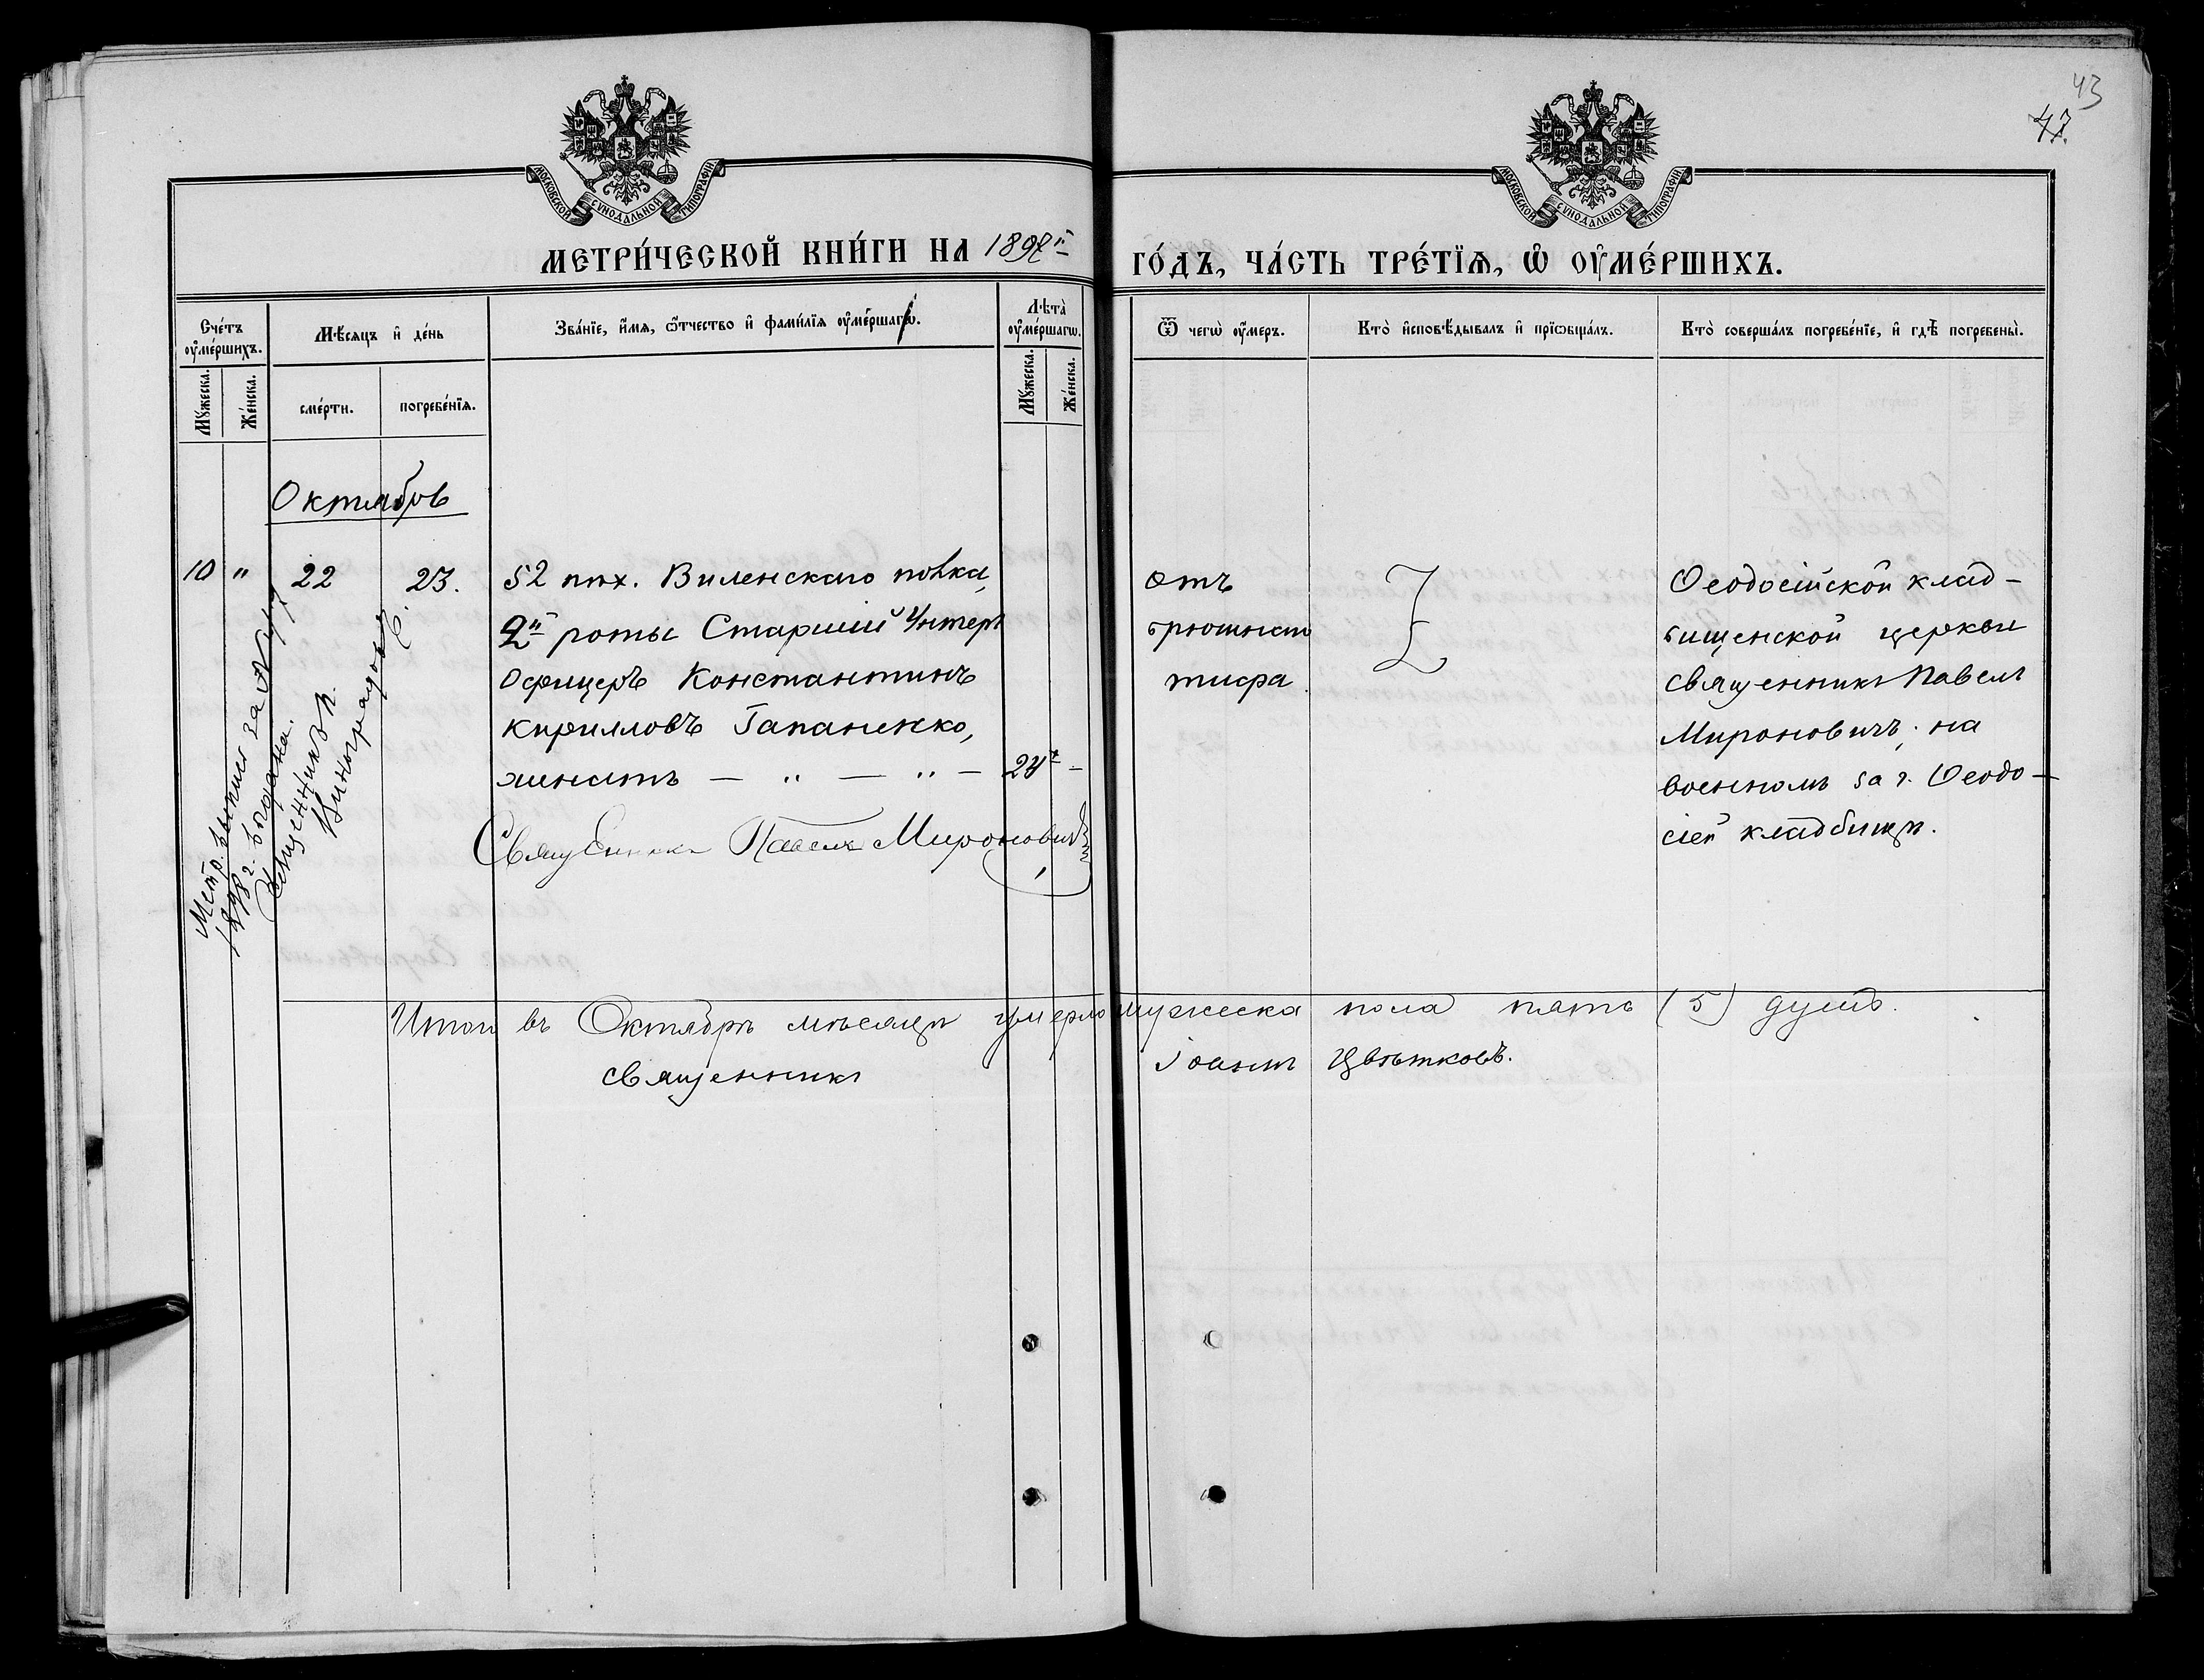 43
47.
МОСКОВСКОЙ СѴНОДАЛЬНОЙ ТИПОГРАФІИ
МОСКОВСКОЙ СѴНОДАЛЬНОЙ ТИПОГРАФІИ
МЕТРИ́ЧЕСКОЙ КНИ́ГИ НА 1897й ГО́ДЪ, ЧА́СТЬ ТРЕ́ТЇѦ, Ѡ҆ ОУ҆МЕ́РШИХЪ.
Сче́тъ оу҆ме́ршихъ.
Мꙋ́жеска.
Же́нска.
Мѣ́сѧцъ и҆ де́нь
сме́рти.
погребе́нїѧ.
Зва́нїе, и҆́мѧ, ѻ҆́тчество и҆ фами́лїѧ оу҆ме́ршагѡ.
Лѣ́та оу҆ме́ршагѡ.
Мꙋ́жеска.
Же́нска.
Ѿ чегѡ̀ оу҆́меръ.
Кто̀ и҆сповѣ́дывалъ и҆ прїѡбща́лъ.
Кто̀ соверша́лъ погребе́нїе, и҆ гдѣ̀ погребены̀.
Октябрь
10 " 22 23.
52 пѣх. Виленскаго полка,
2й роты Старшій Унтеръ
Офицеръ Константинъ
Кирилловъ Гапаненко,
женатъ — " — " — 24 —
Священникъ Павелъ Мироновичъ
отъ
брюшнаго
тифа.
Ѳеодосійской клад-
бищенской церкви
священникъ Павелъ
Мироновичъ; на
военномъ за г. Ѳеодо-
сіей кладбищѣ.
Метр. выпись за №
1898 г. выдана.
Священникъ П.
Виноградовъ.
Итого въ Октябрѣ мѣсяцѣ умерло мужеска пола пять (5) душъ.
Священникъ Іоаннъ Цвѣтковъ.